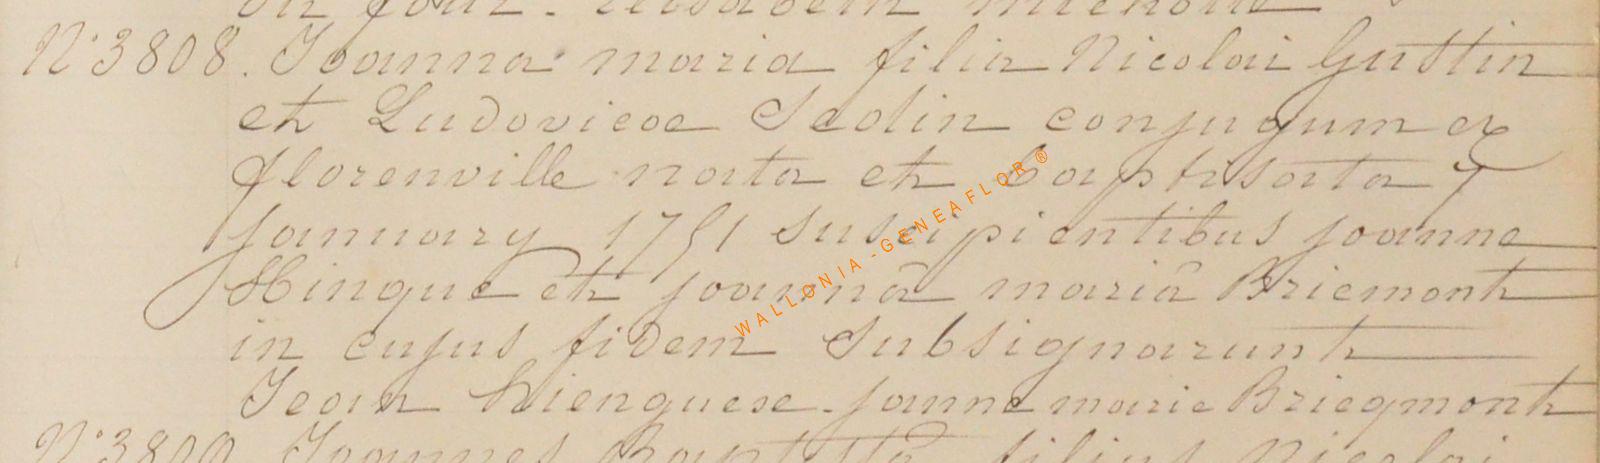 du jour. elisabeth michotte
N° 3808. Joanna maria filia Nicolai Gustin
et Ludovicoe Sedin conjugum ex
florenville nata et baptisata 7
january 1751 suscipientibus joanne
Hingue et joannâ mariâ Briemont
in cujus fidem subsignarunt
Jean hienguese. janne marie Briegmont
N° 3809 Joannes Baptista filius Nicolai
WALLONIA-GENEAFLOR ®